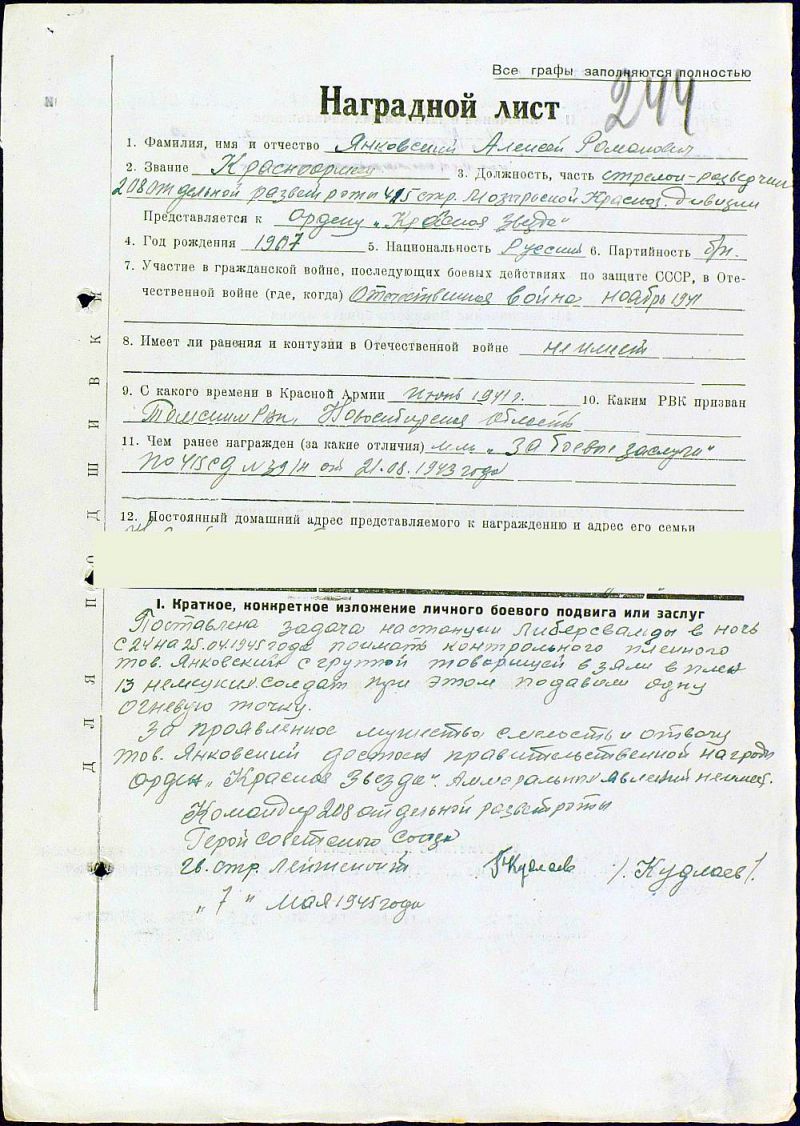 Все графы заполняются полностью
244
Наградной лист
1. Фамилия, имя и отчество Янковский Алексей Романович
2. Звание Красноармеец 3. Должность, часть стрелок-разведчик
208 отдельной развет роты 415 стр. Мозырьской Красноз. дивизии
Представляется к ордену „Красная Звезда"
4. Год рождения 1907 5. Национальность Русский 6. Партийность б/п.
7. Участие в гражданской войне, последующих боевых действиях по защите СССР, в Оте-
чественной войне (где, когда) Отечественная война ноябрь 1941
8. Имеет ли ранения и контузии в Отечественной войне не имеет
9. С какого времени в Красной Армии июнь 1941 г. 10. Каким РВК призван
Томским Рвк, Новосибирская область
11. Чем ранее награжден (за какие отличия) „За боевые заслуги"
по 415 СД от 21.08.1943 года
12. Постоянный домашний адрес представляемого к награждению и адрес его семьи
I. Краткое, конкретное изложение личного боевого подвига или заслуг
Поставлена задача на станции Либерсвальды в ночь
с 24 на 25.04.1945 года поимать контрольного пленного
тов. Янковский с группой товарищей взяли в плен
13 немецких солдат при этом подавили одну
огневую точку.
За проявленное мужество смелость и отвагу
тов. Янковский достоен правительственной награды
орден „Красная Звезда". Аммеральных явлений не имеет.
Командир 208 отдельной разветроты
Герой Советского Союза
Гв. стр. Лейтенант Кудлаев /Кудлаев/.
„7" мая 1945 года
ДЛЯ ПОДШИВКИ